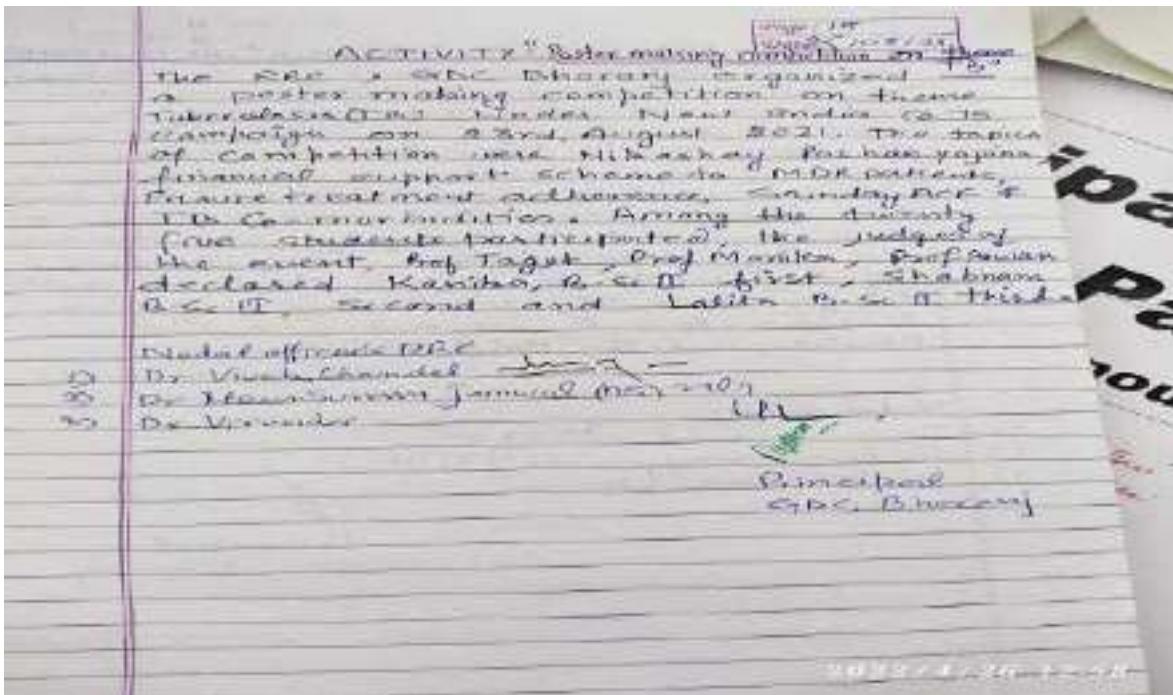 ACTIVITY "Poster making competition on theme TB"
The RRC, GDC Bhoranj organized
a poster making competition on theme
Tuberculosis (TB) Under New India @ 75
Campaign on 23rd August 2021. The topics
of competition were Nikashay Poshan yojana
financial support scheme to MDR patients,
Ensure treatment adherence, Sunday ACF &
TB Co-morbidities. Among the twenty
five students participated, the judges of
the event, Prof Tagat, Prof , Prof Pawan
declared Kanika, B.Sc II first, Shabnam
B.Sc II Second and Lalita B.Sc II third.
Nodal officers RRC
1) Dr Vivek Chandel
2) Dr
3) Dr Virender
Principal
GDC Bhoranj
2022/4/26 12:58
ipa
Pa
hou